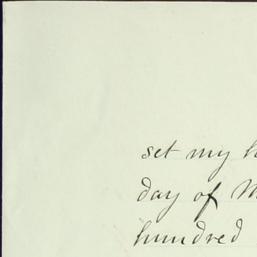 set my
day of
hundred